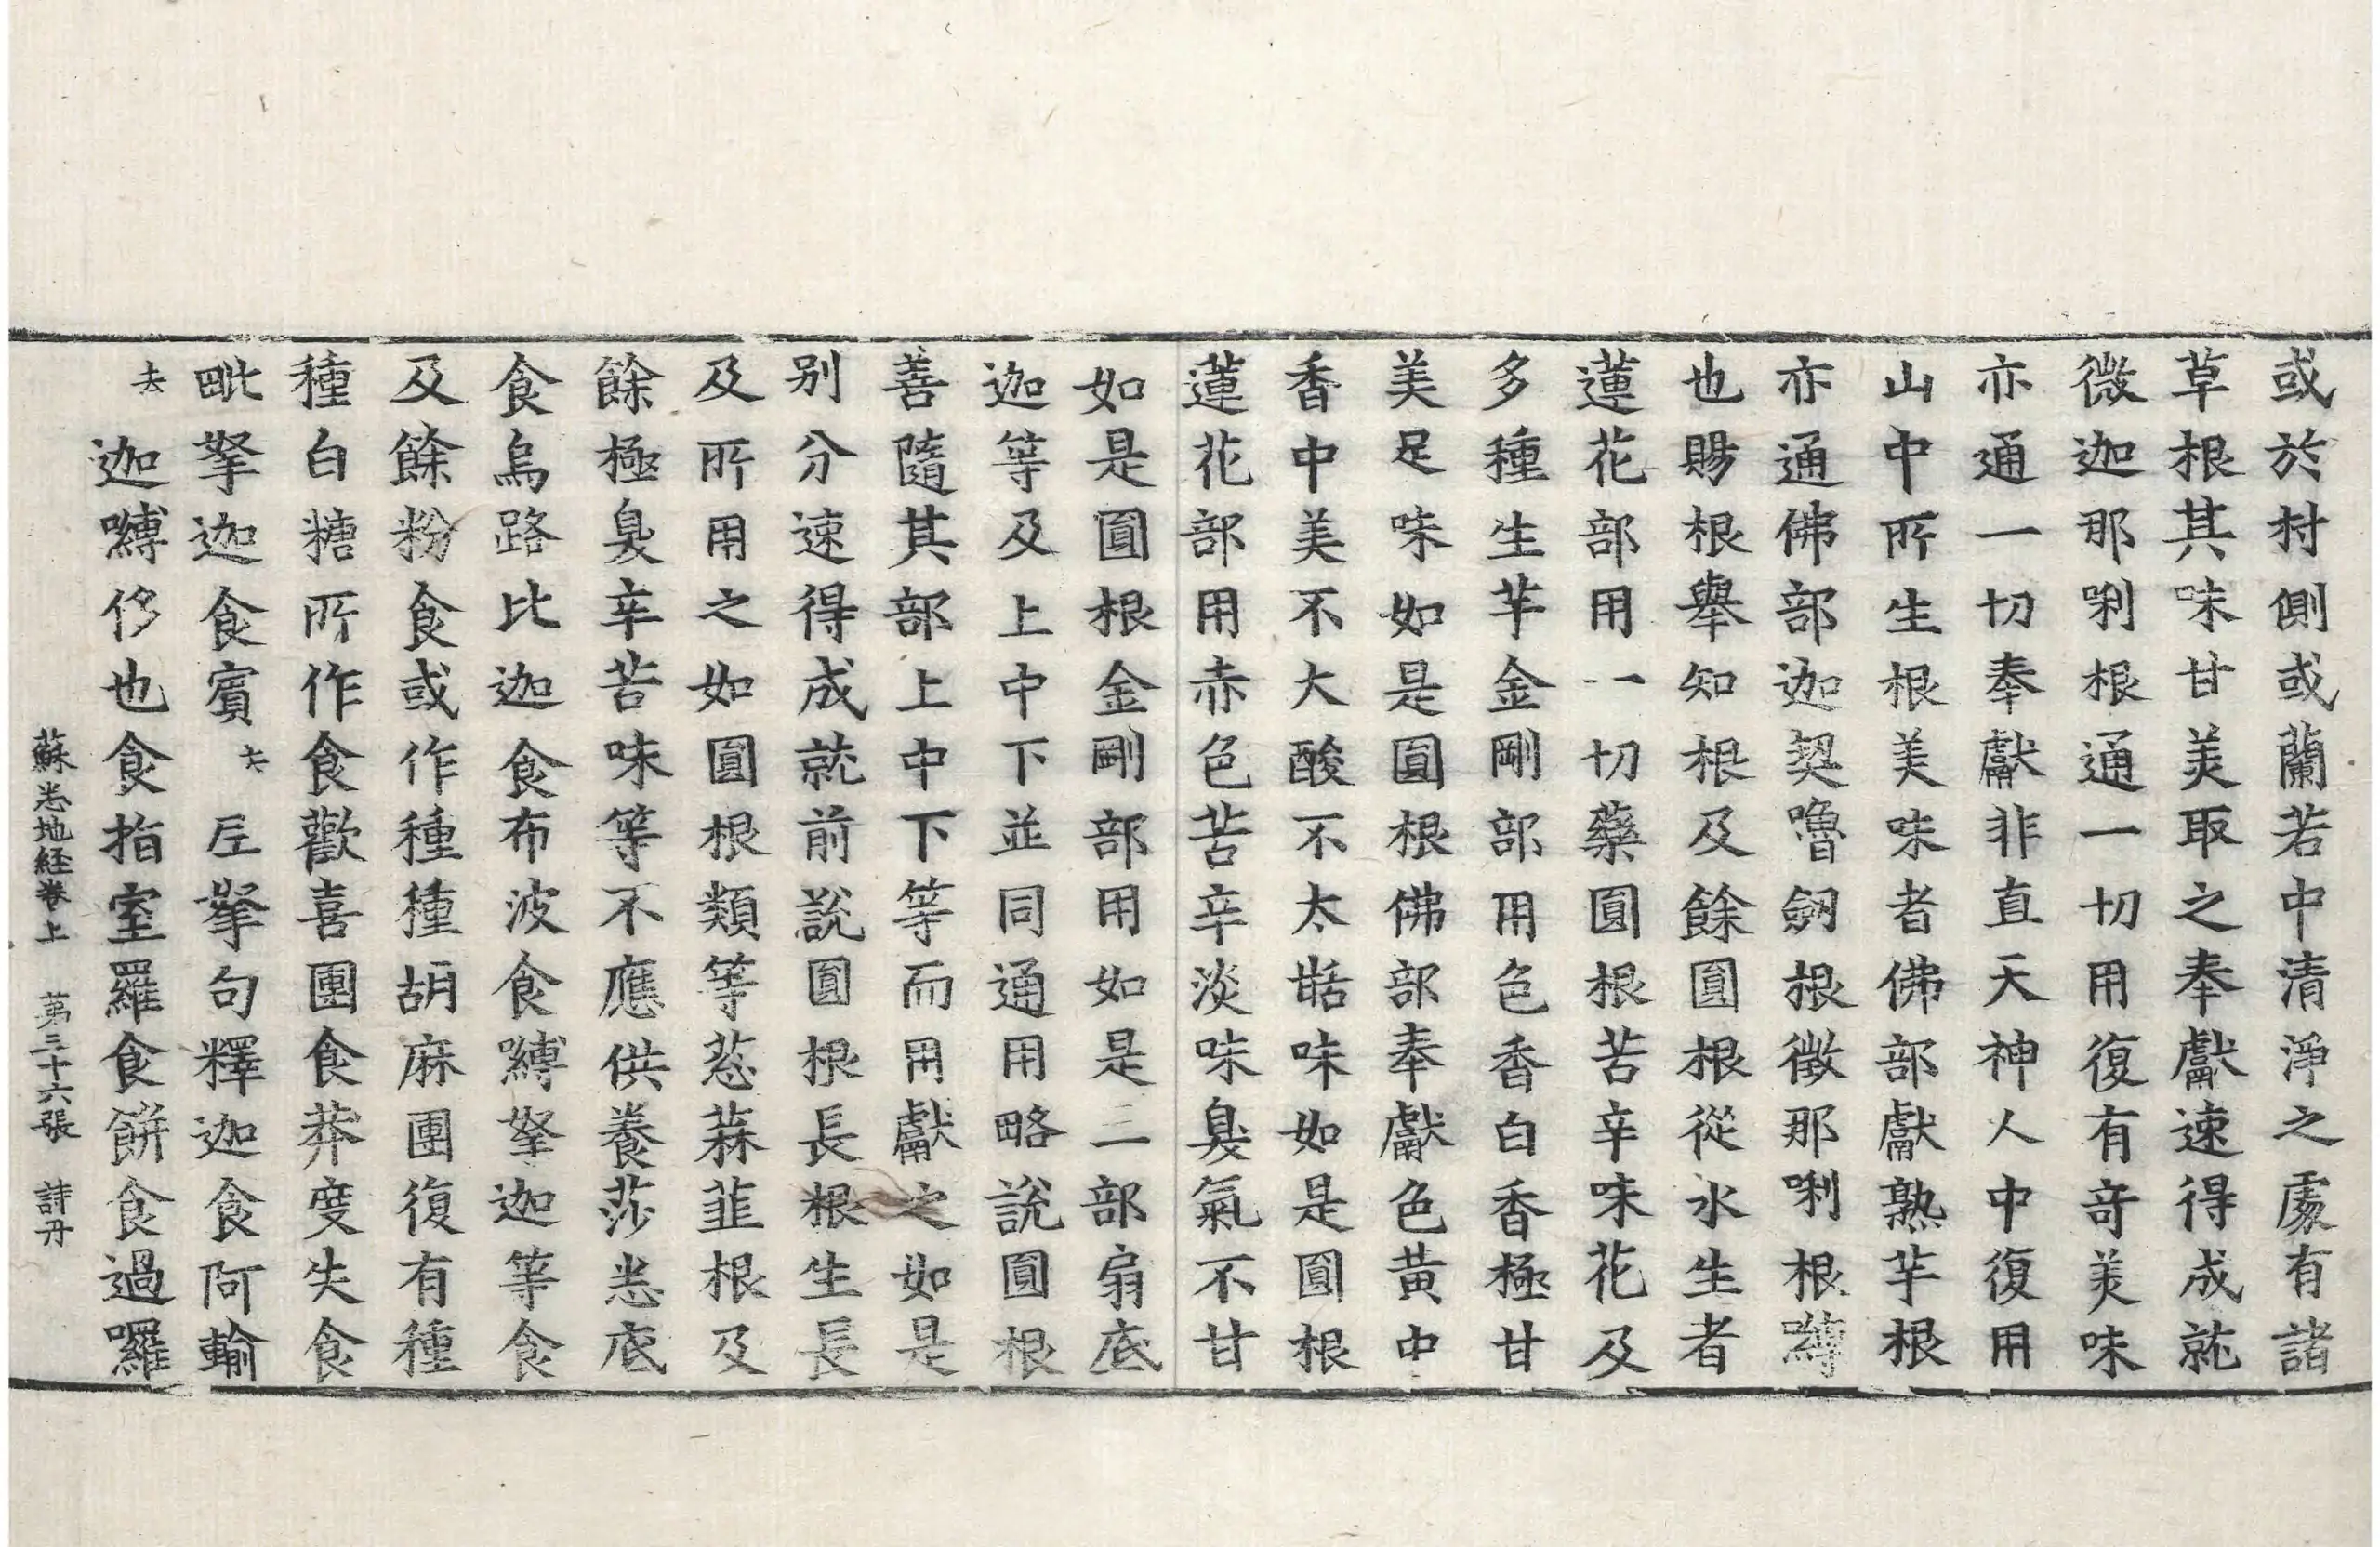 或於村側或蘭若中清淨之處有諸
草根其味甘美取之奉獻速得成就
微迦那唎根通一切用復有奇美味
亦通一切奉獻非直天神人中復用
山中所生根美味者佛部獻熟芋根
亦通佛部迦契嚕劒根徵那唎根嚩
也賜根舉知根及餘圓根從水生者
蓮花部用一切藥圓根苦辛味花及
多種生芋金剛部用色香白香極甘
美足味如是圓根佛部奉獻色黃中
香中美不大酸不太甛味如是圓根
蓮花部用赤色苦辛淡味臭氣不甘
如是圓根金剛部用如是三部扇底
迦等及上中下並同通用略說圓根
善隨其部上中下等而用獻之如是
別分速得成就前說圓根長根生長
及所用之如圓根類等葱蒜韮根及
餘極臭辛苦味等不應供養莎悉底
食烏路比迦食布波食嚩拏迦等食
及餘粉食或作種種胡麻團復有種
種白糖所作食歡喜團食莽度失食
毗拏迦食賓去𭅺拏句釋迦食阿輸
去迦嚩侈也食指室羅食餅食過囉
蘇悉地経卷上 苐三十六張 詩丹